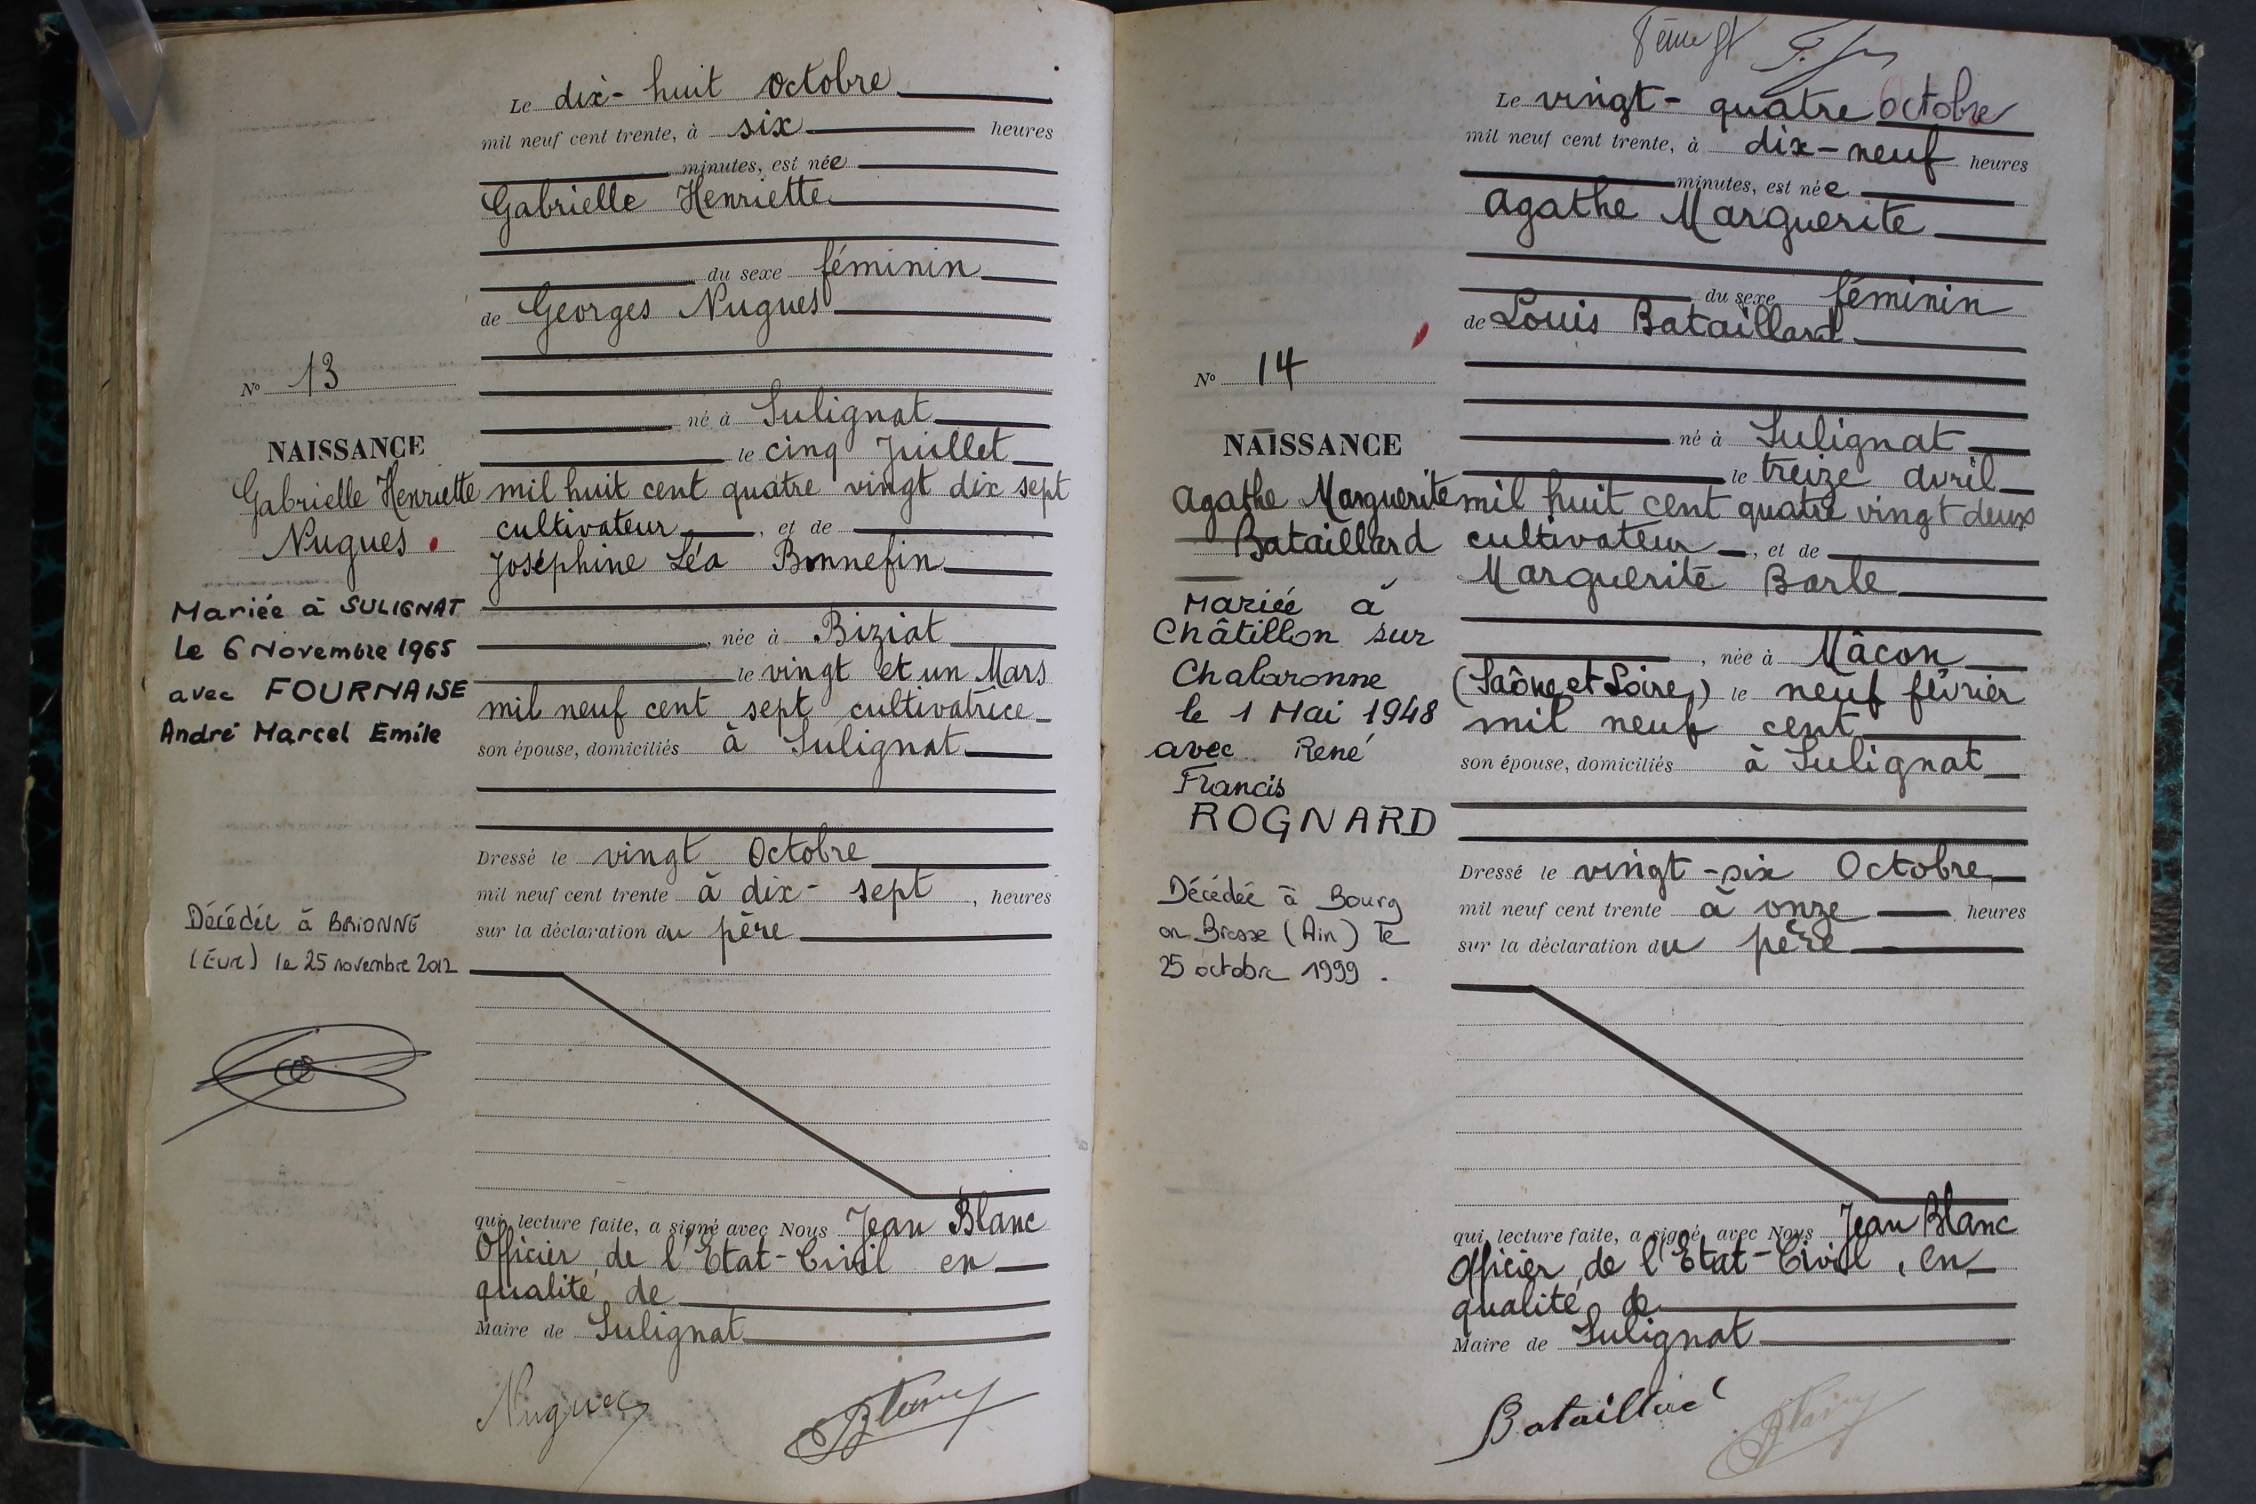 Le dix-huit Octobre
mil neuf cent trente, à six heures
minutes, est née
Gabrielle Henriette
du sexe féminin
de Georges Nugues
né à Sulignat
le cinq Juillet
mil huit cent quatre vingt dix sept
cultivateur, et de
Joséphine Léa Bonnefin
, née à Biziat
le vingt et un Mars
mil neuf cent sept cultivatrice
son épouse, domiciliés à Sulignat
Dressé le vingt Octobre
mil neuf cent trente à dix-sept, heures
sur la déclaration du père
qui, lecture faite, a signé avec Nous Jean Blanc
Officier de l'Etat-Civil en
qualité de
Maire de Sulignat
Nugues
Blanc
N° 13
NAISSANCE
Gabrielle Henriette
Nugues
Mariée à SULIGNAT
le 6 Novembre 1965
avec FOURNAISE
André Marcel Emile
Décédée à BRIONNE
(Eure) le 25 novembre 2012
Le vingt-quatre Octobre
mil neuf cent trente, à dix-neuf heures
minutes, est née
Agathe Marguerite
du sexe féminin
de Louis Bataillard
né à Sulignat
le treize Avril
mil huit cent quatre vingt deux
cultivateur, et de
Marguerite Barle
, née à Mâcon
(Saône et Loire) le neuf février
mil neuf cent
son épouse, domiciliés à Sulignat
Dressé le vingt-six Octobre
mil neuf cent trente à onze heures
sur la déclaration du père
qui, lecture faite, a signé avec Nous Jean Blanc
Officier de l'Etat-Civil, en
qualité de
Maire de Sulignat
Bataillard
Blanc
N° 14
NAISSANCE
Agathe Marguerite
Bataillard
Mariée à
Châtillon sur
Chalaronne
le 1 Mai 1948
avec René
Francis
ROGNARD
Décédée à Bourg
en Bresse (Ain) le
25 octobre 1999.